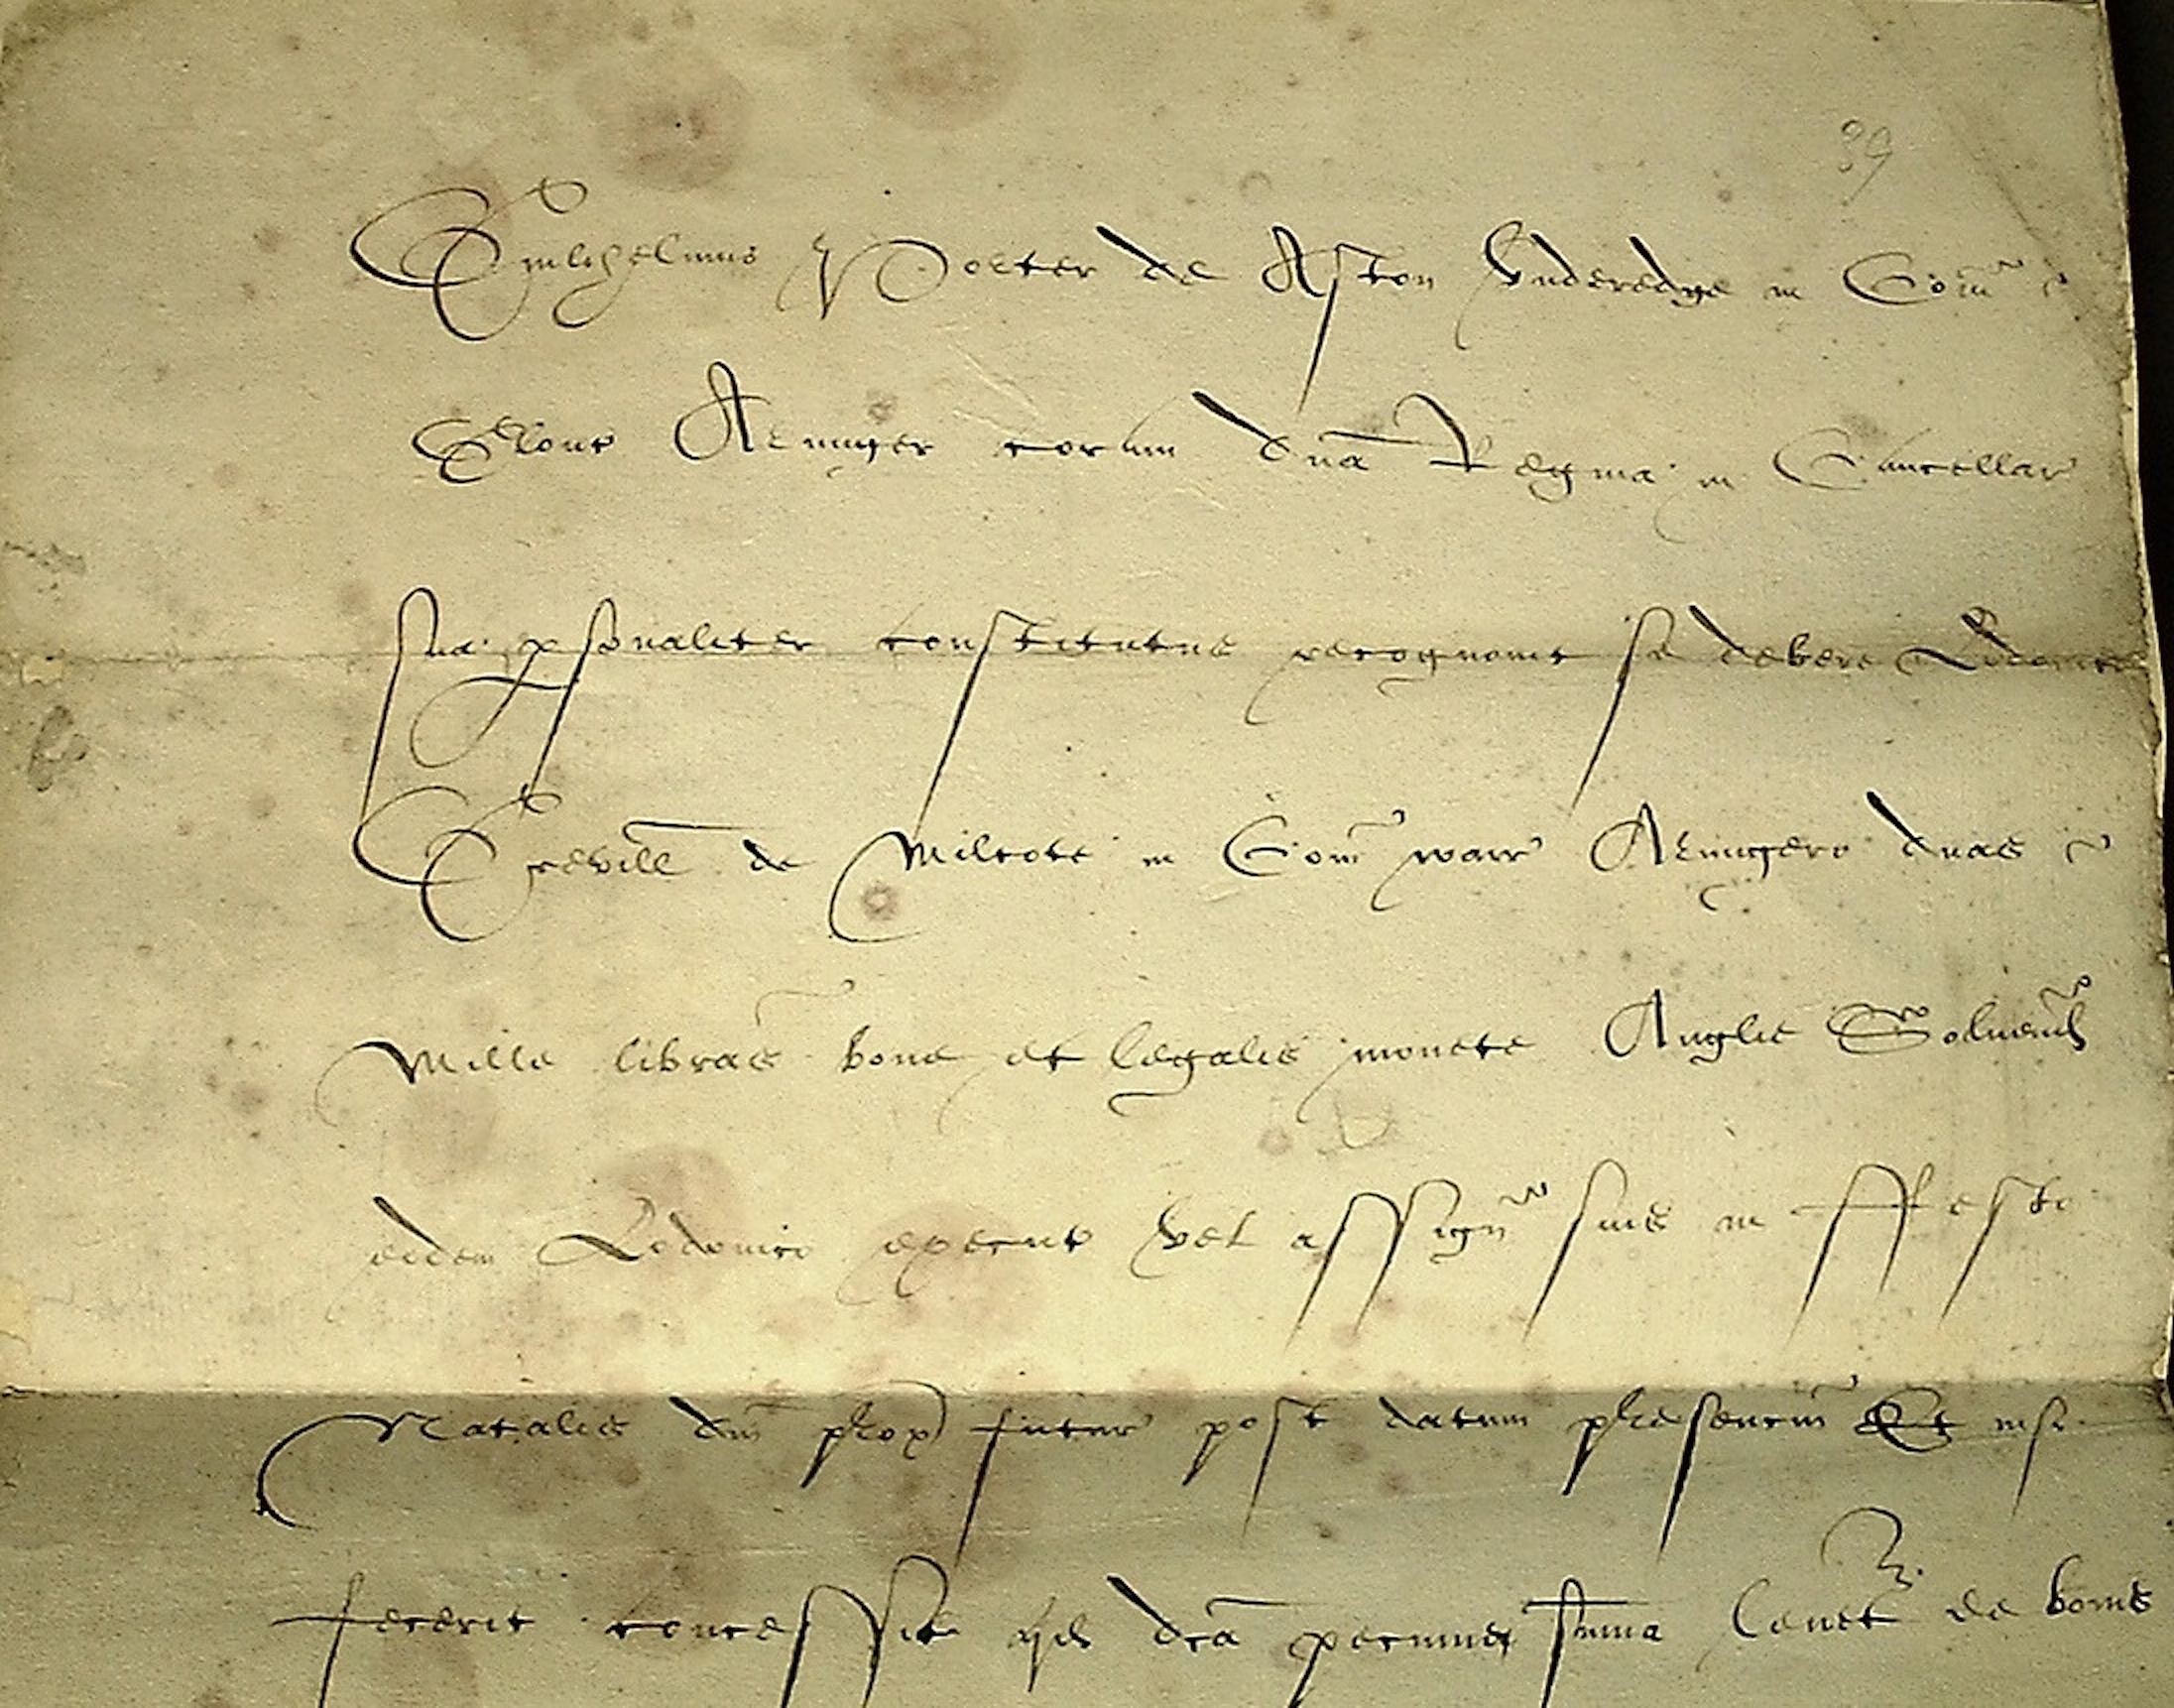 39
Guilihelmus Porter de Aston Underedge in Com
Glouc Armiger coram dna Regina in Cancellar
sua psonaliter constitutus recognovit se debere Lodovico
Grevill de Milcote in Com warr Armigero duas
Mille libras bone et legalis monete Anglie Solvend
eidem Lodovico execut vel assign suis in ffesto
Natalis dni prox futur post datum presencium Et nisi
fecerit concessit qd dca pecunie summa levet de bonis